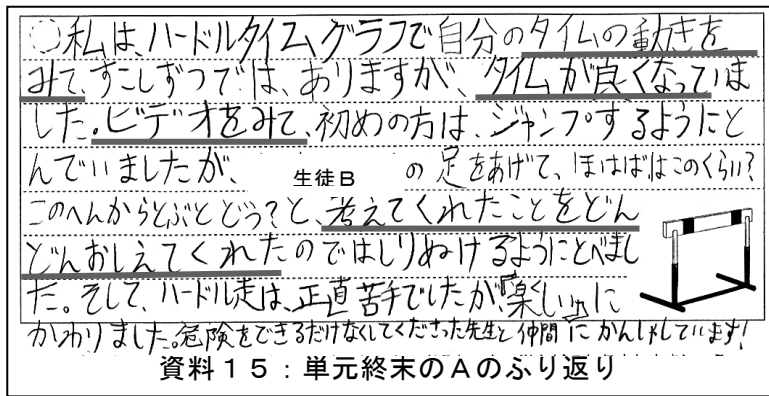 ○私は、ハードルタイムグラフで自分のタイムの動きを
みて、すこしずつでは、ありますが、タイムが良くなっていま
した。ビデオをみて、初めの方は、ジャンプするようにと
んでいましたが、生徒B の足をあげて、ほはばはこのくらい?
このへんからとぶとどう?と、考えてくれたことをどん
どんおしえてくれたのではしりぬけるようにとべまし
た。そして、ハードル走は、正直苦手でしたが、『楽しい』に
かわりました。危険をできるだけなくしてくださった先生と仲間にかんしゃしています!
資料15:単元終末のAのふり返り